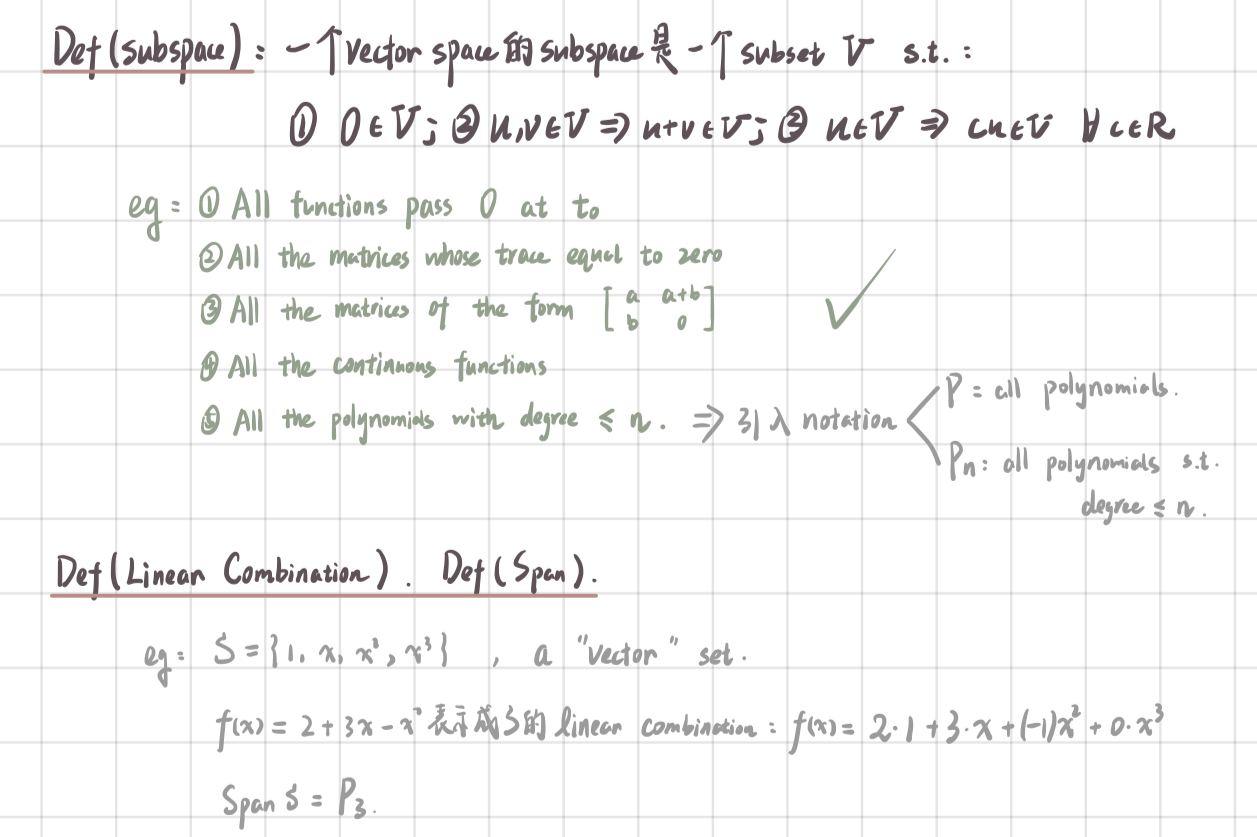 Def(subspace): 一个vector space的subspace是一个subset V s.t.:
① 0∈V; ② u,v∈V ⇒ u+v∈V; ③ u∈V ⇒ cu∈V ∀c∈R
eg: ① All functions pass 0 at t₀
② All the matrices whose trace equal to zero
③ All the matrices of the form [a a+b; b 0]
④ All the continuous functions
⑤ All the polynomials with degree ≤ n. ⇒ 引入notation
P: all polynomials.
Pn: all polynomials s.t.
degree ≤ n.
Def(Linear Combination). Def(Span).
eg: S = {1, x, x², x³}, a "vector" set.
f(x) = 2 + 3x - x² 表示成S的linear combination: f(x) = 2·1 + 3·x + (-1)x² + 0·x³
Span S = P₃.